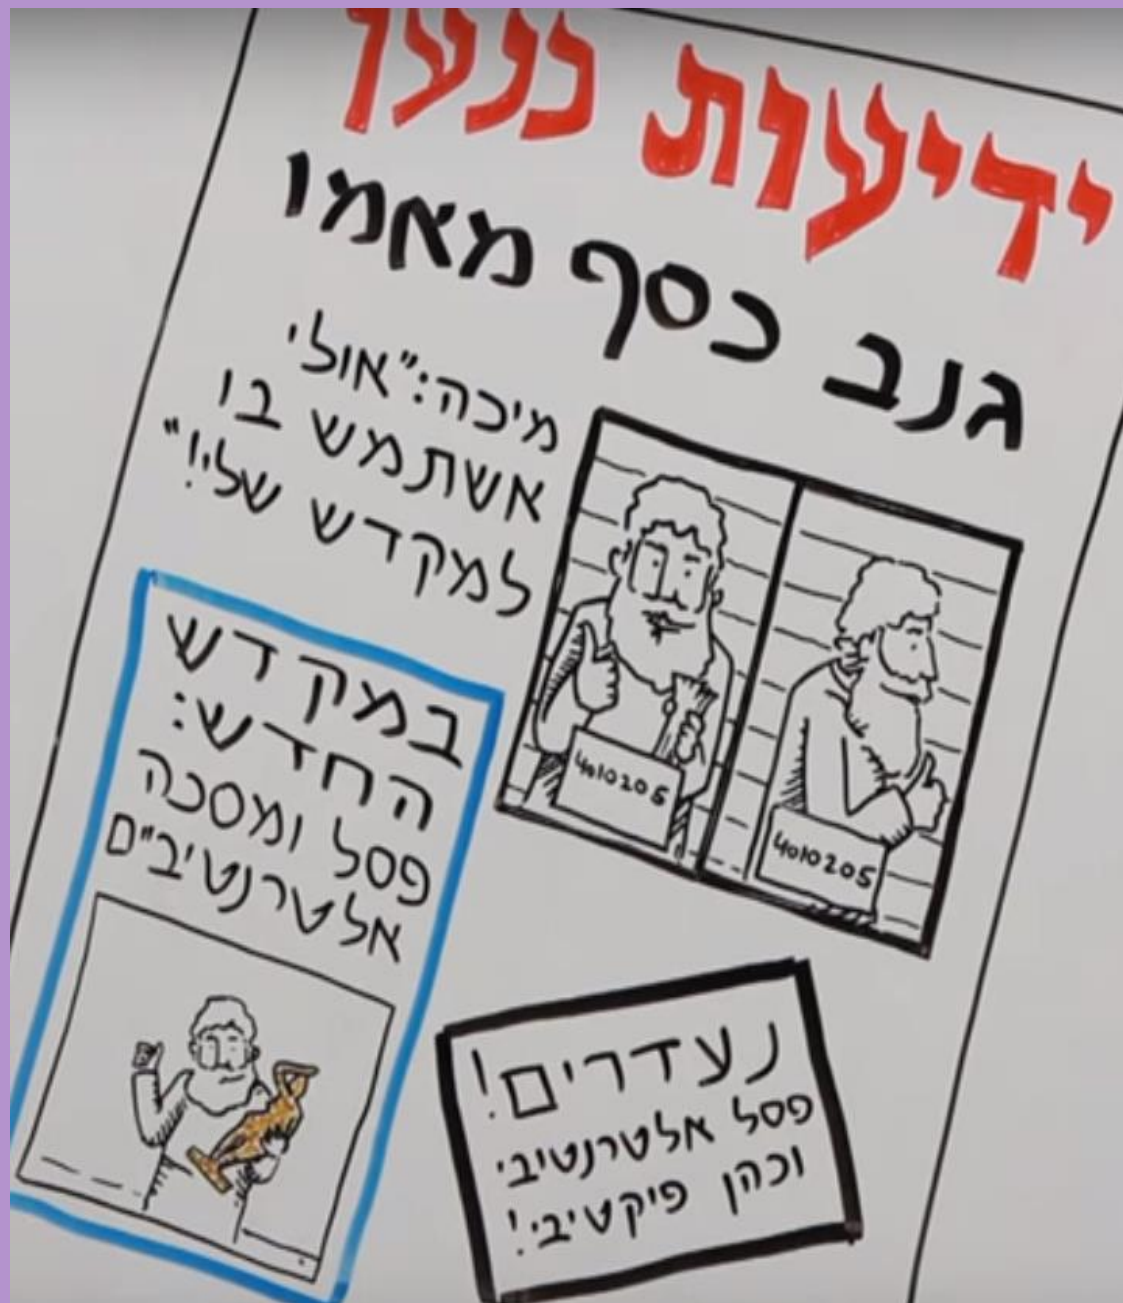 ידיעות כנען
גנב כסף מאמו
מיכה: "אולי
אשתמש בו
למקדש שלי!"
4010205
4010205
במקדש
החדש:
פסל ומסכה
אלטרנטיב"ם
נעדרים!
פסל אלטרנטיבי
וכהן פיקטיבי!